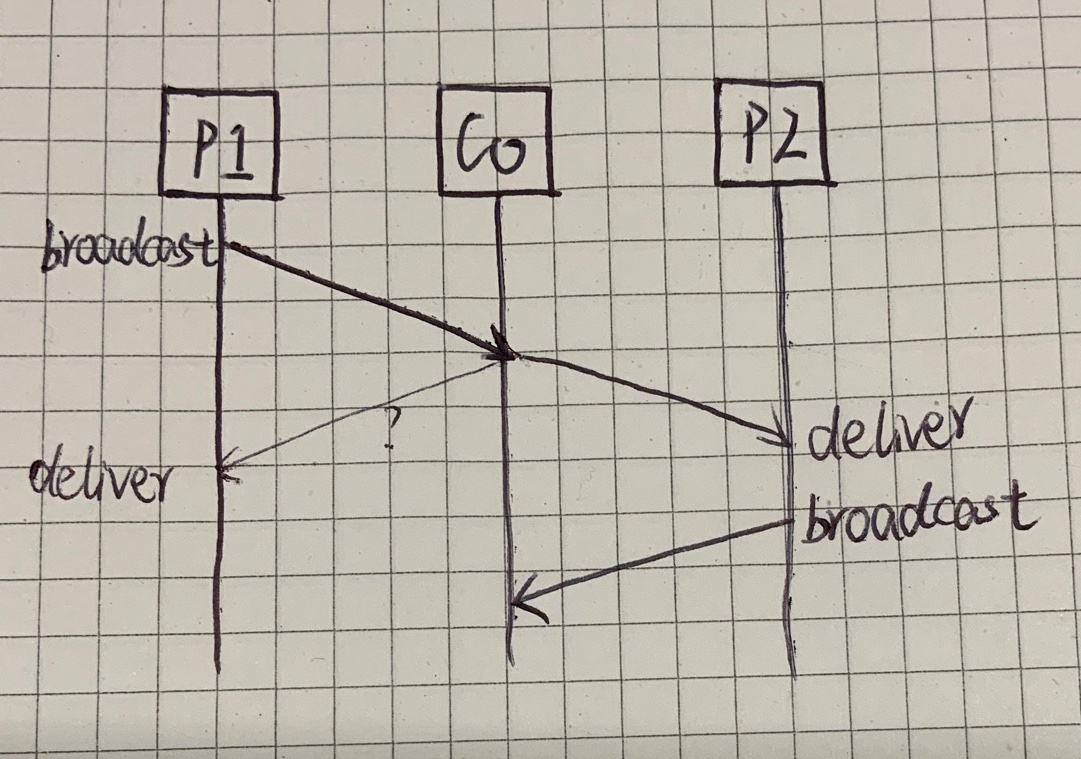 P1
Co
P2
broadcast
?
deliver
deliver
broadcast